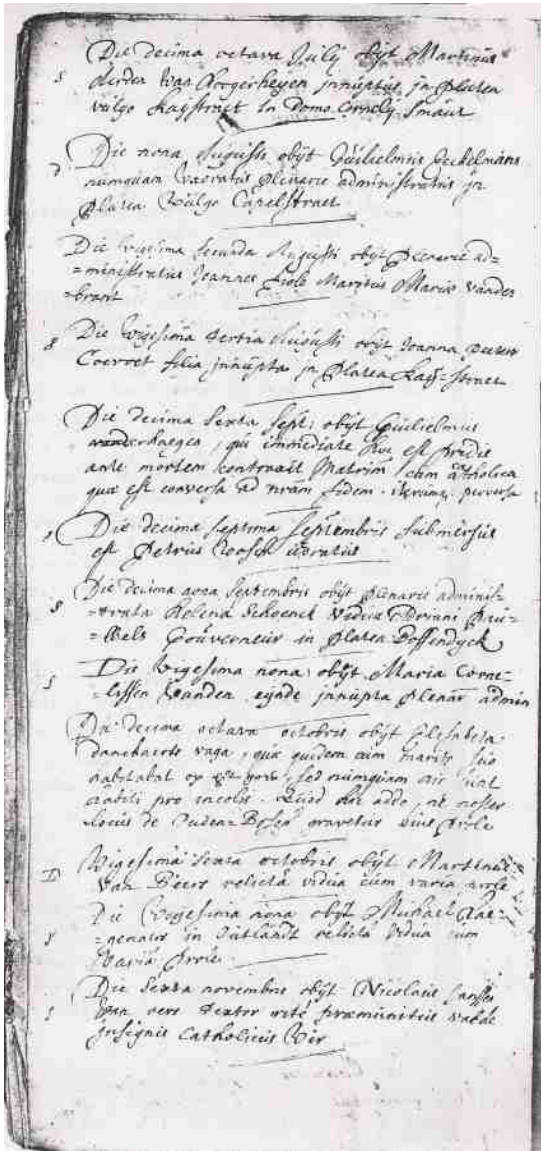 Die decima octava Julij obijt Martinus
S derden Van Hoogerheijen innuptus in Platea
vulgo Kaijstraet in Domo Cornelij Smaut
Die nona Augusti obijt Guilielmus
numquam uxoratus plenarie administratus in
platea Vulgo Capelstraet
Die Vigesima secunda Augusti obijt plenarie ad=
=ministratus Joannes Maritus Maria Vander
=brant
S Die Vigesima tertia Augusti obijt Joanna Peeters
Coevoet filia innupta in Platea Kaij=straet
Die decima sexta Sept: obijt Guilielmus
qui immediate hoc est pridie
ante mortem contraxit Matrim cum
quæ est conversa ad nram fidem. iterum perversa
Die decima septima Septembris submersus
est Petrus uxoratus
S Die decima nona Septembris obijt plenarie adminis=
=trata Helena Schoenck Vidua Doriani Pau=
=Wels Gouverneur in platea Boffendijck
S Die Vigesima nona obijt Maria Corne=
=lissen Vanden eijnde innupta plenar admin
Die decima octava octobris obijt Elisabeta
danckaerts vaga, quæ quidem cum marito suo
habitabat sed numquam hic
habiti pro incolis. Quod hic addo, ne noster
locus de Ouden=Bosch gravetur eius prole
D Vigesima sexta octobris obijt Martinus
Van Beers relicta vidua cum varia prole
S Die Vigesima nona obijt Michael
in Outlandt relicta Vidua cum
Varia prole.
S Die Sexta novembris obijt Nicolaus Janssen
Van textor rite præmunitus valde
insignis Catholicus Vir